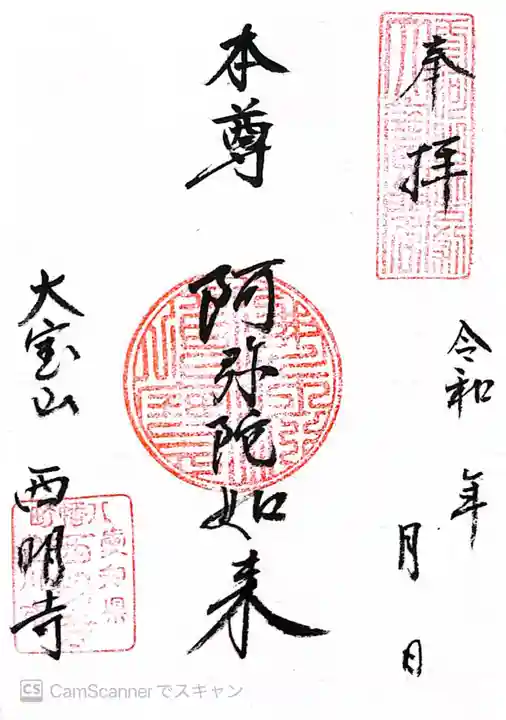 奉拝
令和 年 月 日
本尊 阿弥陀如来
大宝山 西明寺
CS CamScannerでスキャン